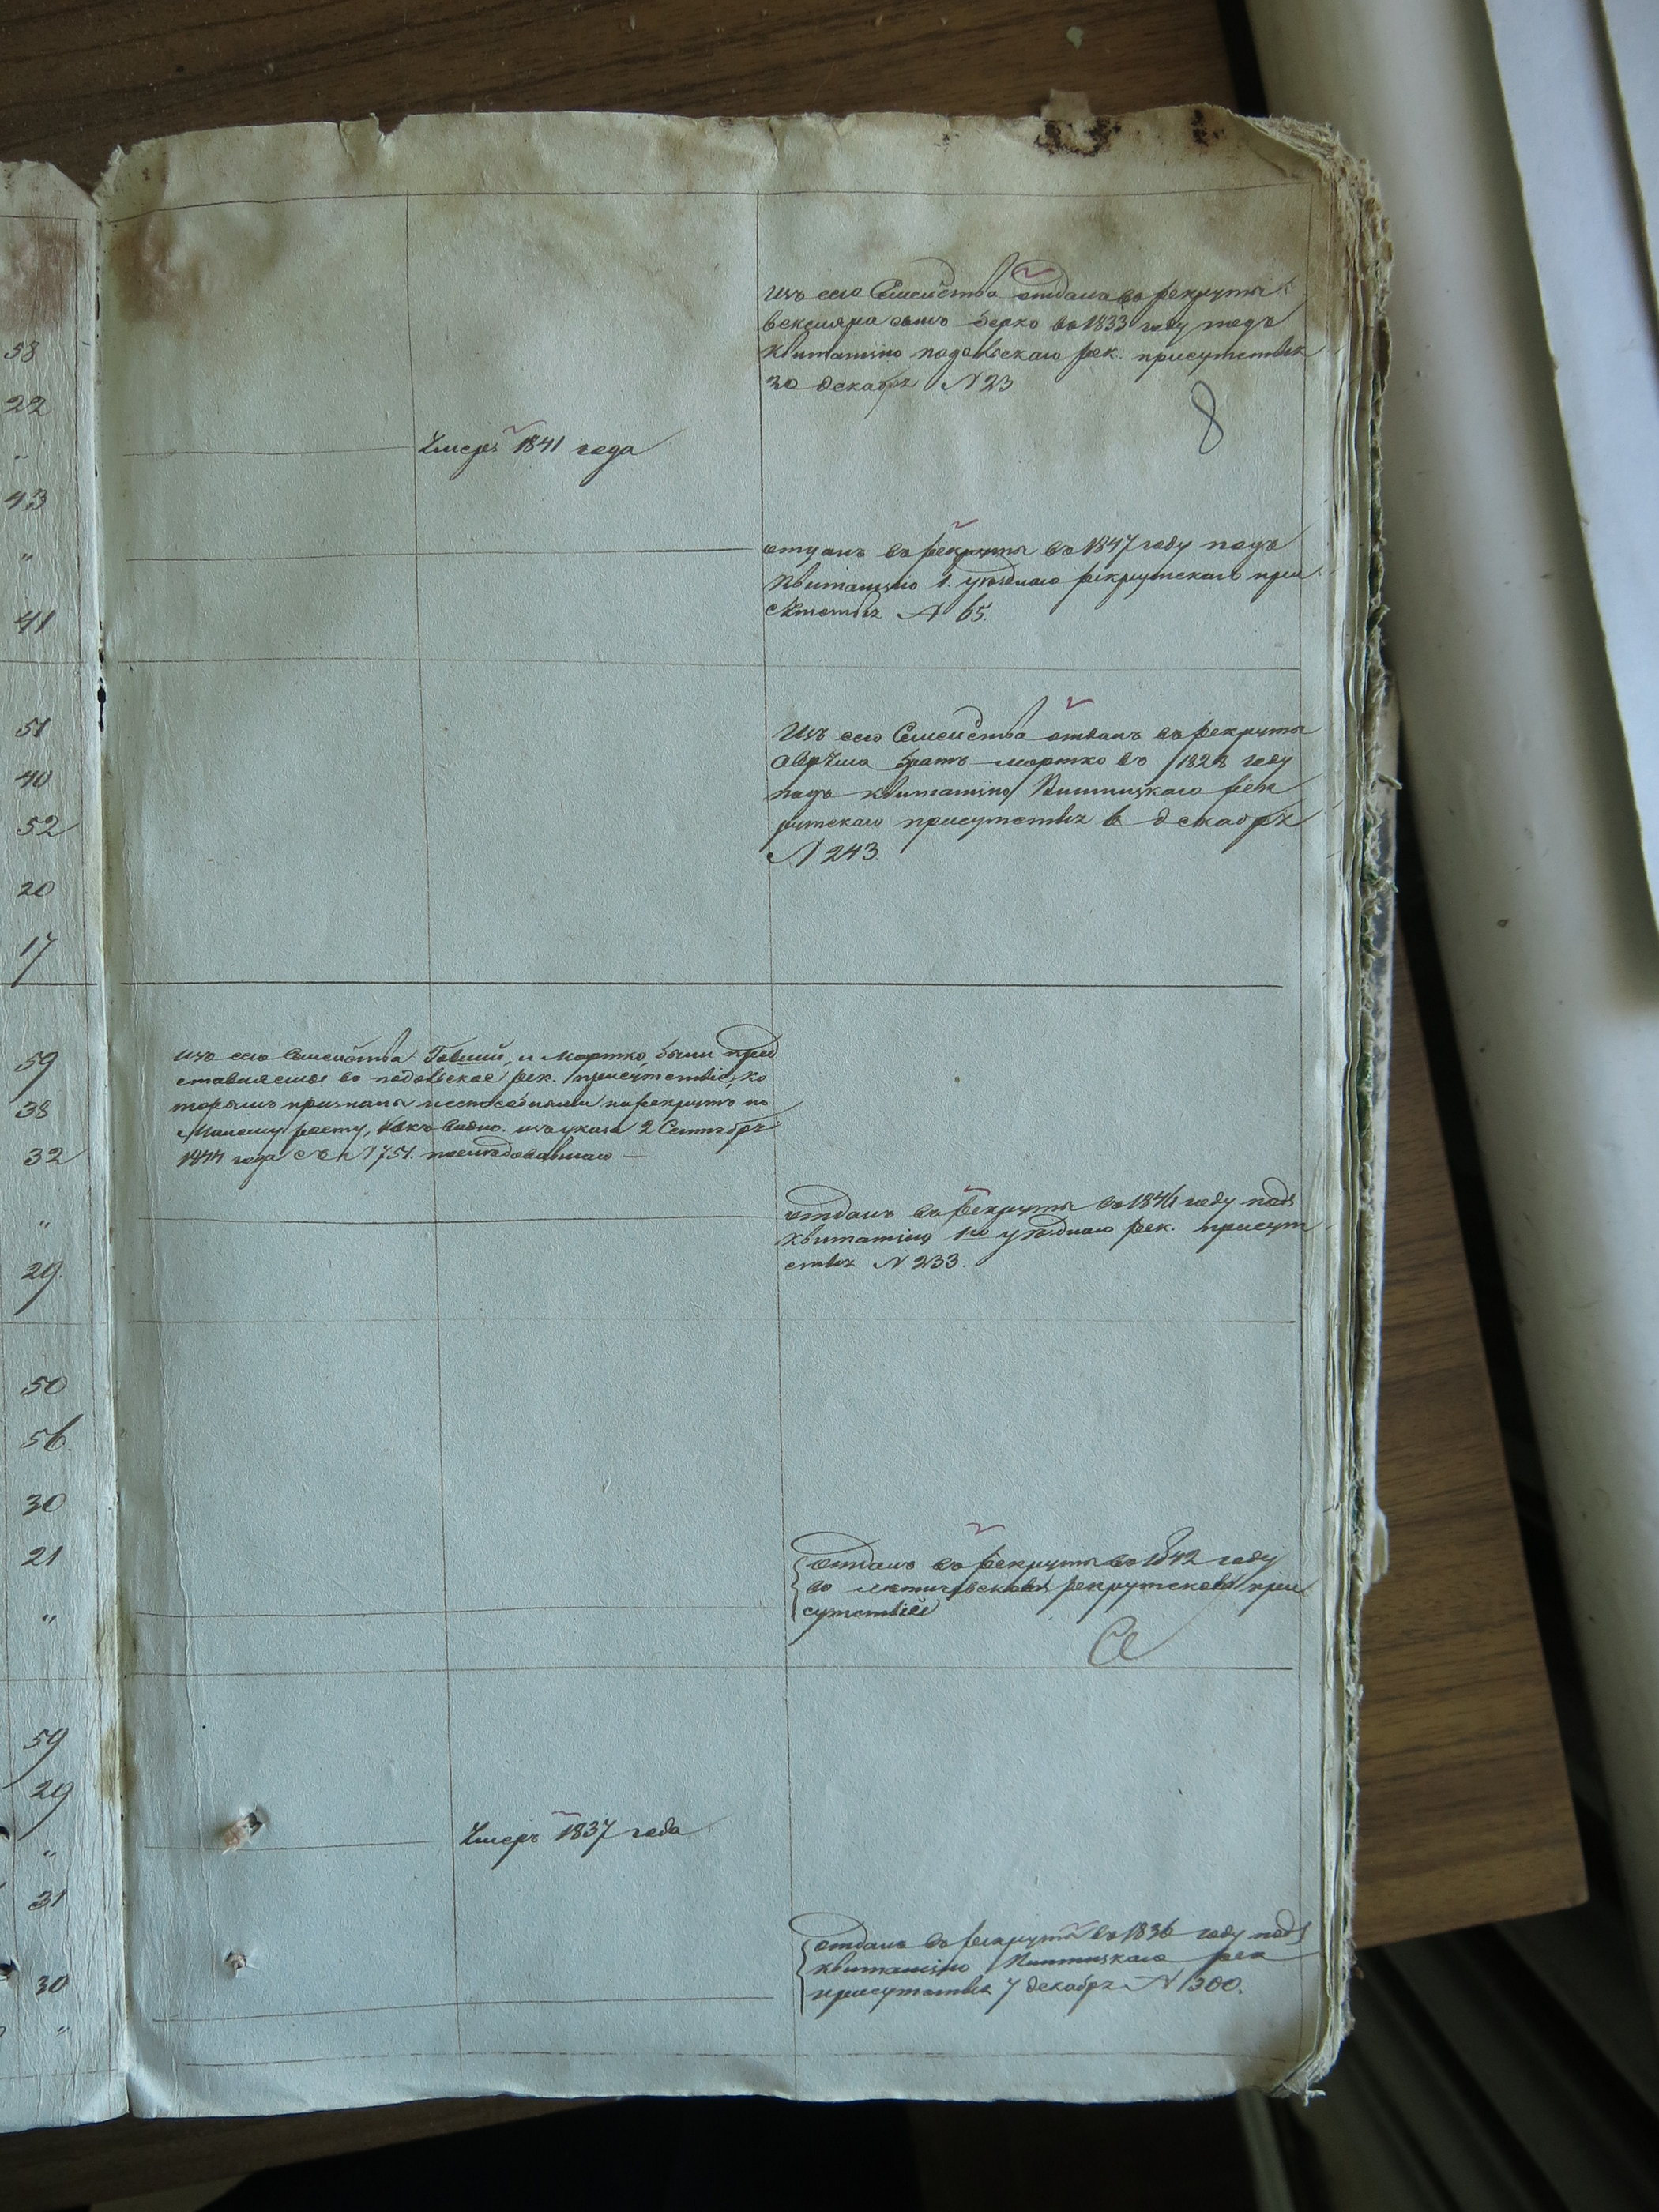 изъ сего Семейства отданъ въ рекруты
сынъ Берко въ 1833 году подъ
квитанцію подольскаго рек. присутствія
30 декабря N 23
8
58
22
"
Умеръ 1841 года
43
"
отданъ въ рекруты въ 1847 году подъ
квитанцію 1. уѣзднаго рекрутскаго при
сутствія N 65.
41
51
Изъ сего Семейства отданъ въ рекруты
Аврума братъ мортко въ 1828 году
подъ квитанцію Винницкаго рек
рутскаго присутствія 6 декабря
N 243.
40
52
20
17
59
изъ сего Семейства и Мортко были пред
ставляемы въ подольское рек. присутствіе, ко
торымъ признаны неспособными въ рекруты по
малому росту, какъ видно изъ указа 2 Сентября
1844 года за N 1751. послѣдовавшаго —
38
32
"
отданъ въ рекруты въ 1841 году подъ
квитанцію 1го уѣзднаго рек. присут
ствія N 233.
29.
50
56.
30
21
отданъ въ рекруты въ 1842 году
въ рекрутское при
сутствіе
"
59
29
"
Умеръ 1837 года
31
30
отданъ въ рекруты въ 1836 году подъ
квитанцію Винницкаго рек
присутствія 7 декабря N 1300.
"